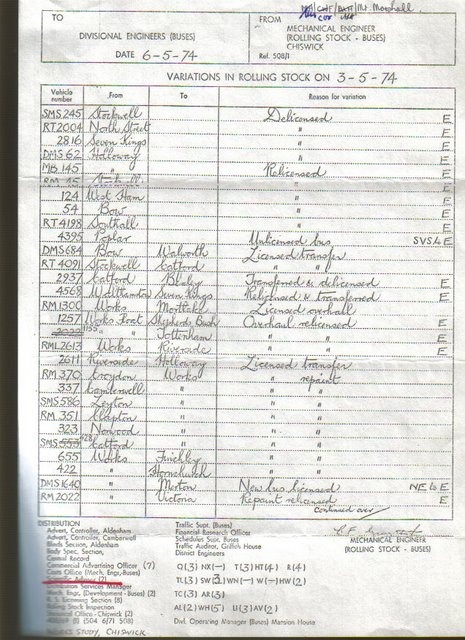 TO
FROM
DIVISIONAL ENGINEERS (BUSES)
MECHANICAL ENGINEER
(ROLLING STOCK - BUSES)
CHISWICK
DATE 6-5-74
Ref. 508/1
VARIATIONS IN ROLLING STOCK ON 3-5-74
Vehicle number From To Reason for variation
SMS 245 Stockwell Delicensed E
RT 2004 North Street " E
2816 Seven Kings " E
DMS 62 Holloway " E
MB 145 " Relicensed E
RM 45 Stockwell
124 West Ham " E
54 Bow " E
RT 4198 Southall " E
4395 Poplar Unlicensed bus SVS & E
DMS 684 Bow Walworth Licensed transfer
RT 4091 Stockwell Catford " "
2937 Catford Transferred & delicensed E
4568 Walthamstow Seven Kings Relicensed & transferred E
RM 1300 Works Mortlake Licensed overhaul
1257 Works Float Shepherds Bush Overhaul relicensed E
1155 " Tottenham " E
RML 2613 Works Riverside "
2611 Riverside Holloway Licensed transfer
RM 370 Croydon Works " repaint
337 Camberwell " " "
SMS 586 Leyton " " "
RM 351 Clapton " " "
323 Norwood " " "
SMS Catford " " "
655 Works Finchley " "
422 " Hornchurch " "
DMS 1640 " Merton New bus licensed NE & E
RM 2022 " Victoria Repaint relicensed E
continued over
DISTRIBUTION
Advert. Controller, Aldenham
Advert. Controller, Camberwell
Blinds Section, Aldenham
Body Spec. Section,
Central Record
Commercial Advertising Officer (7)
Costs Office (Mech. Engr.-Buses)
Scientific Adviser (2)
Services Manager
Mech. Engr. (Development - Buses) (2)
R. S. Licensing Section (8)
Rolling Stock Inspection
Technical Office - Chiswick (2)
(I) (504 6/71 508)
WORKS STUDY, CHISWICK
Traffic Supt. (Buses)
Financial Research Officer
Schedules Supt. Buses
Traffic Auditor, Griffith House
District Engineers
Q (3) NX (-) T (3) HT (4) R (4)
TL (3) SW 3 WN (-) W (-) HW (2)
TC (3) AR (3)
AL (2) WH (5) LI (3) AV (2)
Divl. Operating Manager (Buses) Mansion House
MECHANICAL ENGINEER
(ROLLING STOCK - BUSES)